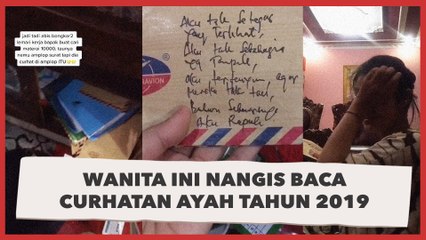 jadi tadi abis bongkar2
lemari kerja bapak buat cari
materai 10000, taunya
nemu amplop surat tapi dia
curhat di amplop ITU😭😭
Aku tak setegar
yang terlihat,
Aku tak sebahagia
yg tampak,
aku tersenyum, agar
mereka tak tau,
Bahwa sebenarnya
Aku Rapuh
AVION
WANITA INI NANGIS BACA
CURHATAN AYAH TAHUN 2019